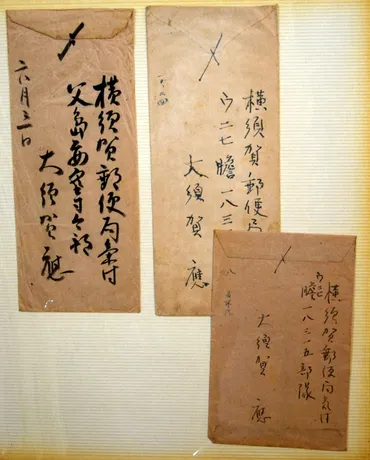 〆
横須賀郵便局気付
父島要塞司令部
大須賀應
〆
横須賀郵便局
ウ二七膽一八三
大須賀應
〆
横須賀郵便局気付
ウ二七
膽一八三一五部隊
大須賀應